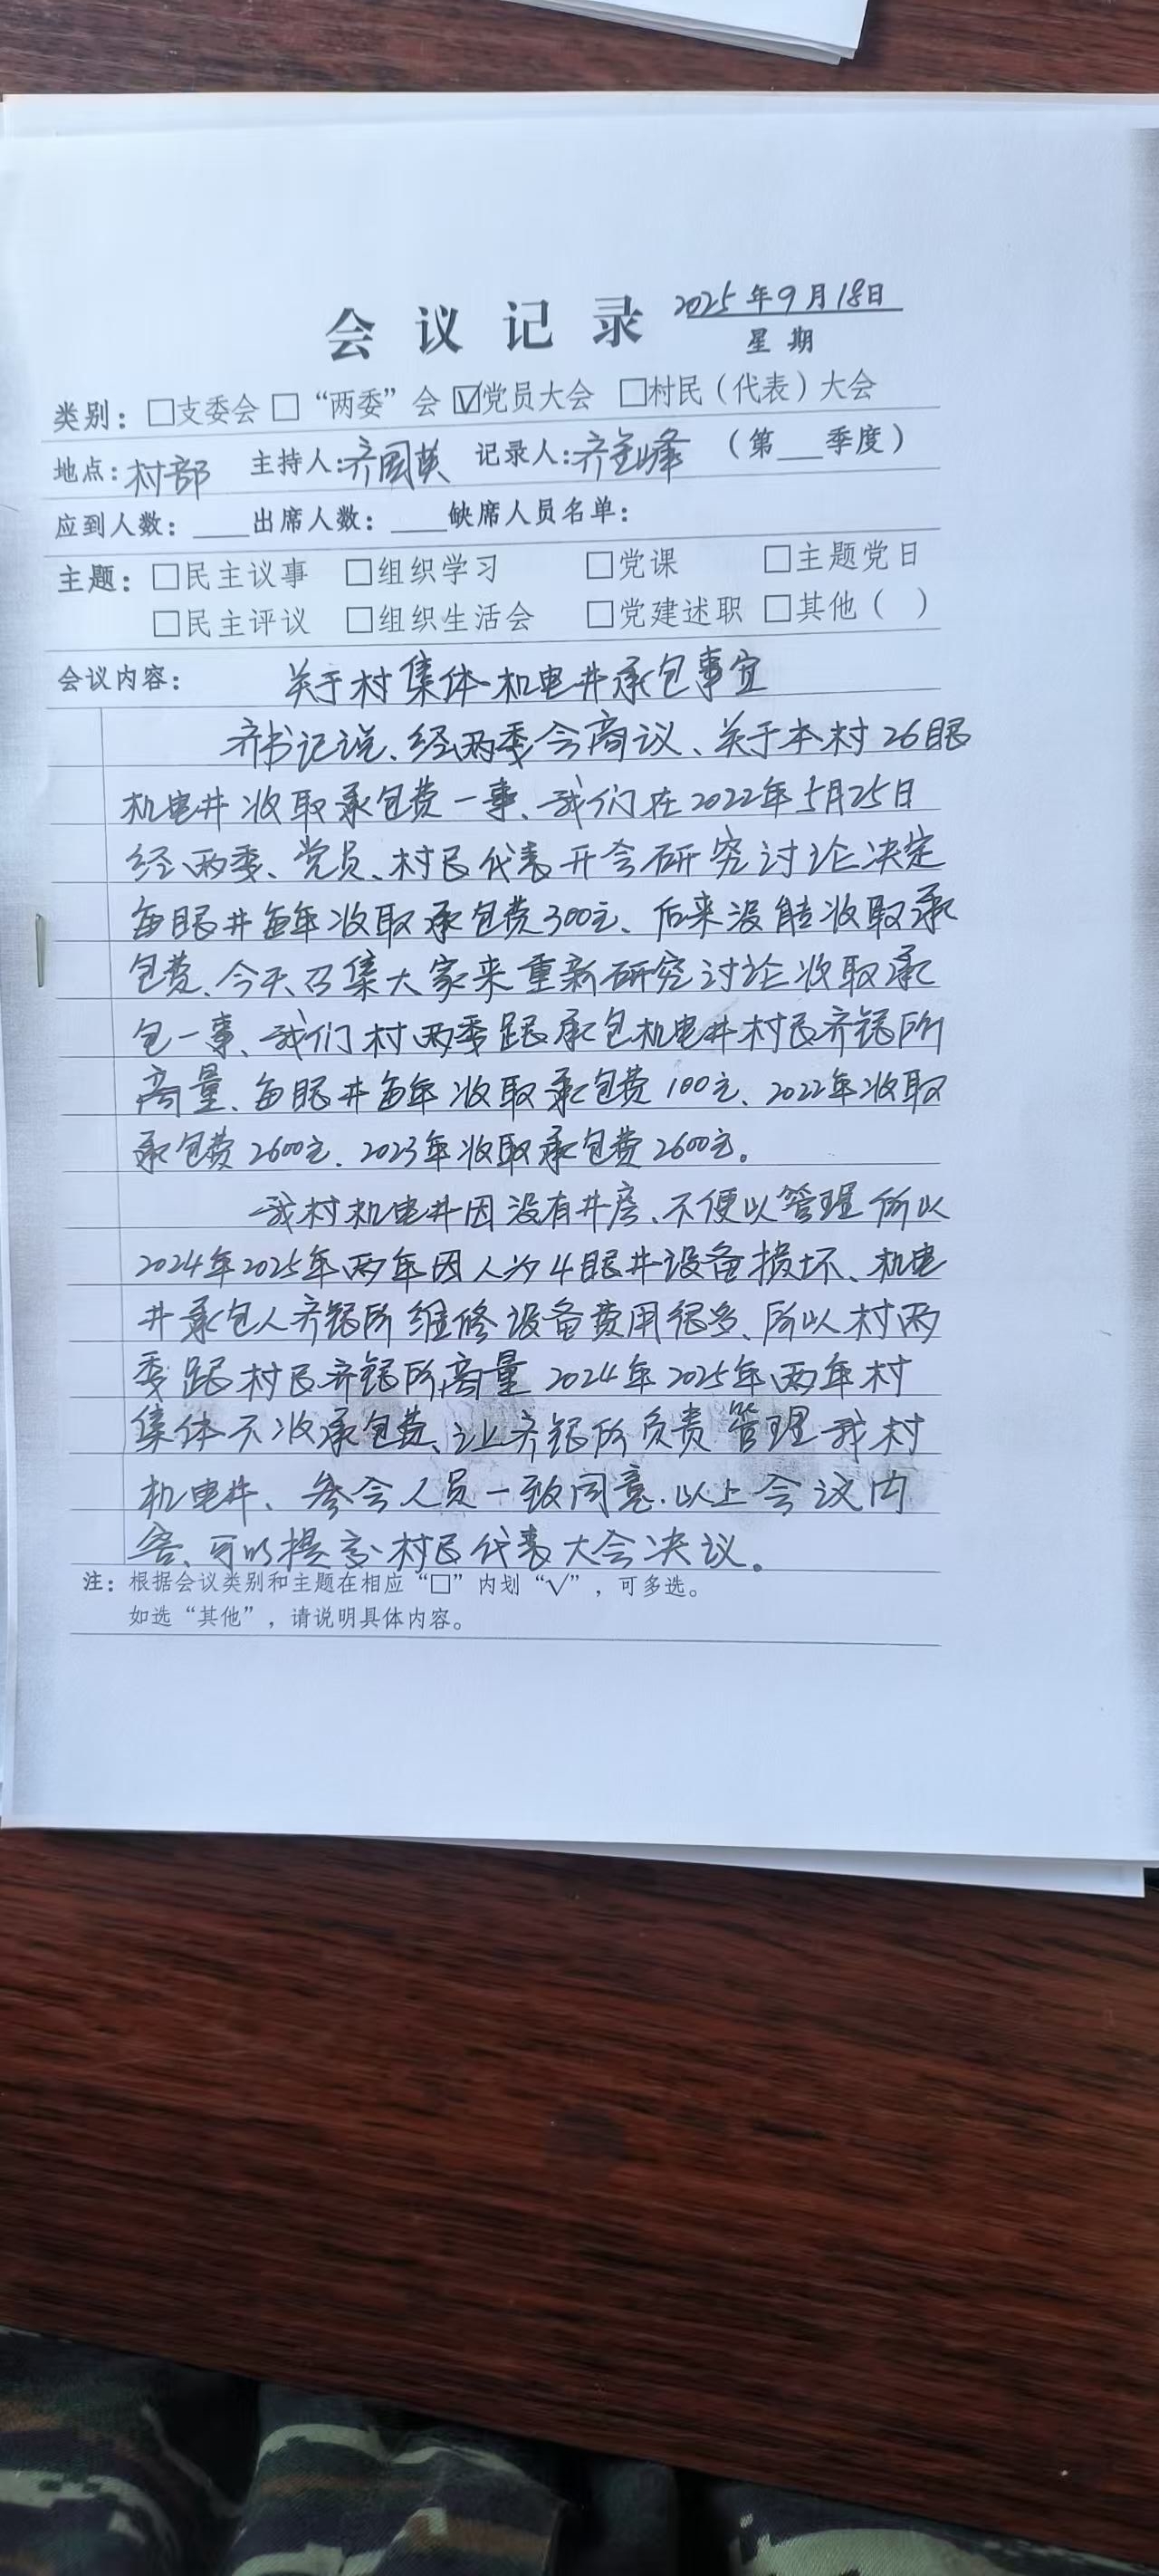 会议记录 2025年9月18日
星期
类别：□支委会 □“两委”会 ☑党员大会 □村民（代表）大会
地点：村部 主持人：齐国英 记录人：齐金峰 （第___季度）
应到人数：____出席人数：____缺席人员名单：
主题：□民主议事 □组织学习 □党课 □主题党日
□民主评议 □组织生活会 □党建述职 □其他（ ）
会议内容： 关于村集体机电井承包事宜
齐书记说、经两委会商议、关于本村26眼
机电井收取承包费一事、我们在2022年5月25日
经两委、党员、村民代表开会研究讨论决定
每眼井每年收取承包费300元、后来没能收取承
包费、今天召集大家来重新研究讨论收取承
包一事、我们村两委跟承包机电井村民齐银所
商量、每眼井每年收取承包费100元、2022年收取
承包费2600元、2023年收取承包费2600元。
我村机电井因没有井房、不便以管理所以
2024年2025年两年因人为4眼井设备损坏、机电
井承包人齐银所维修设备费用很多、所以村两
委跟村民齐银所商量2024年2025年两年村
集体不收承包费、让齐银所负责管理我村
机电井、参会人员一致同意.以上会议内
容、可以提交村民代表大会决议。
注：根据会议类别和主题在相应“□”内划“√”，可多选。
如选“其他”，请说明具体内容。